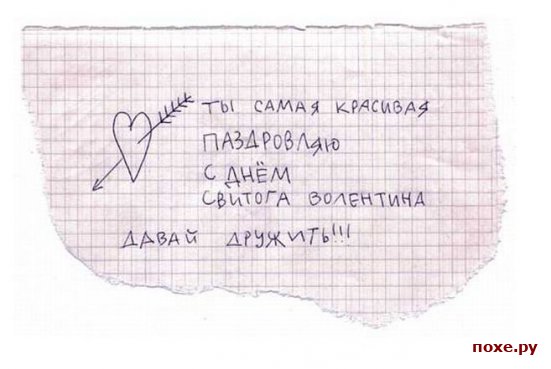 ты самая красивая
паздровляю
с днём
свитога волентина
давай дружить!!!
похе.ру